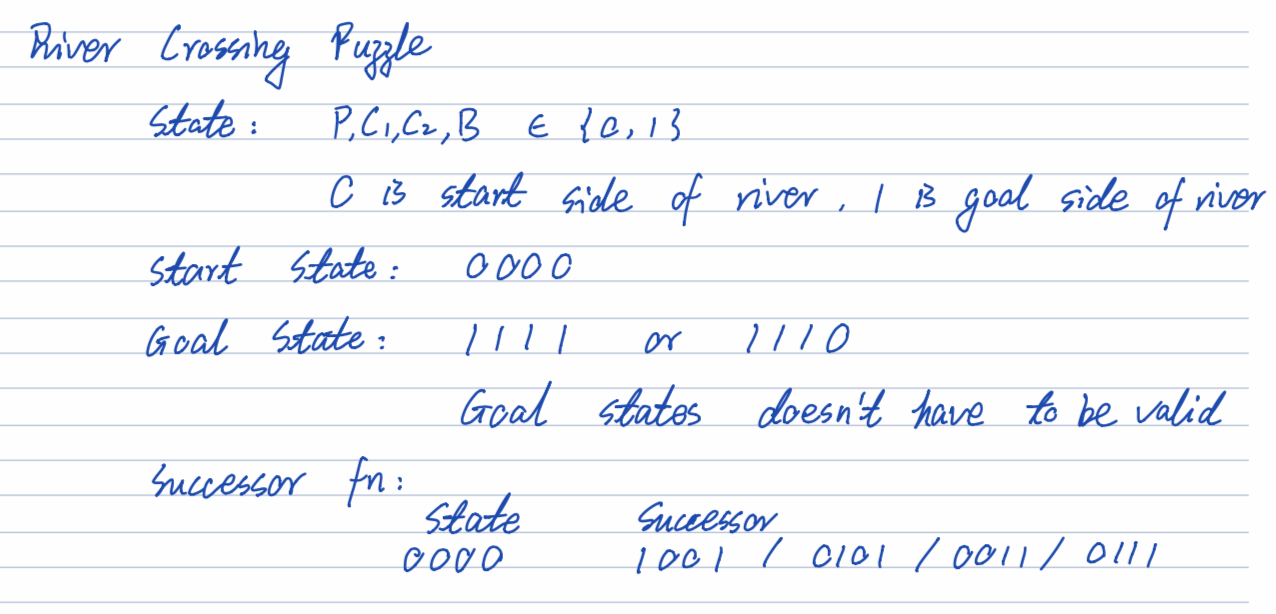 River Crossing Puzzle
State: P,C₁,C₂,B ∈ {0,1}
0 is start side of river, 1 is goal side of river
Start State: 0000
Goal State: 1111 or 1110
Goal states doesn't have to be valid
Successor fn:
State Successor
0000 1001 / 0101 / 0011 / 0111